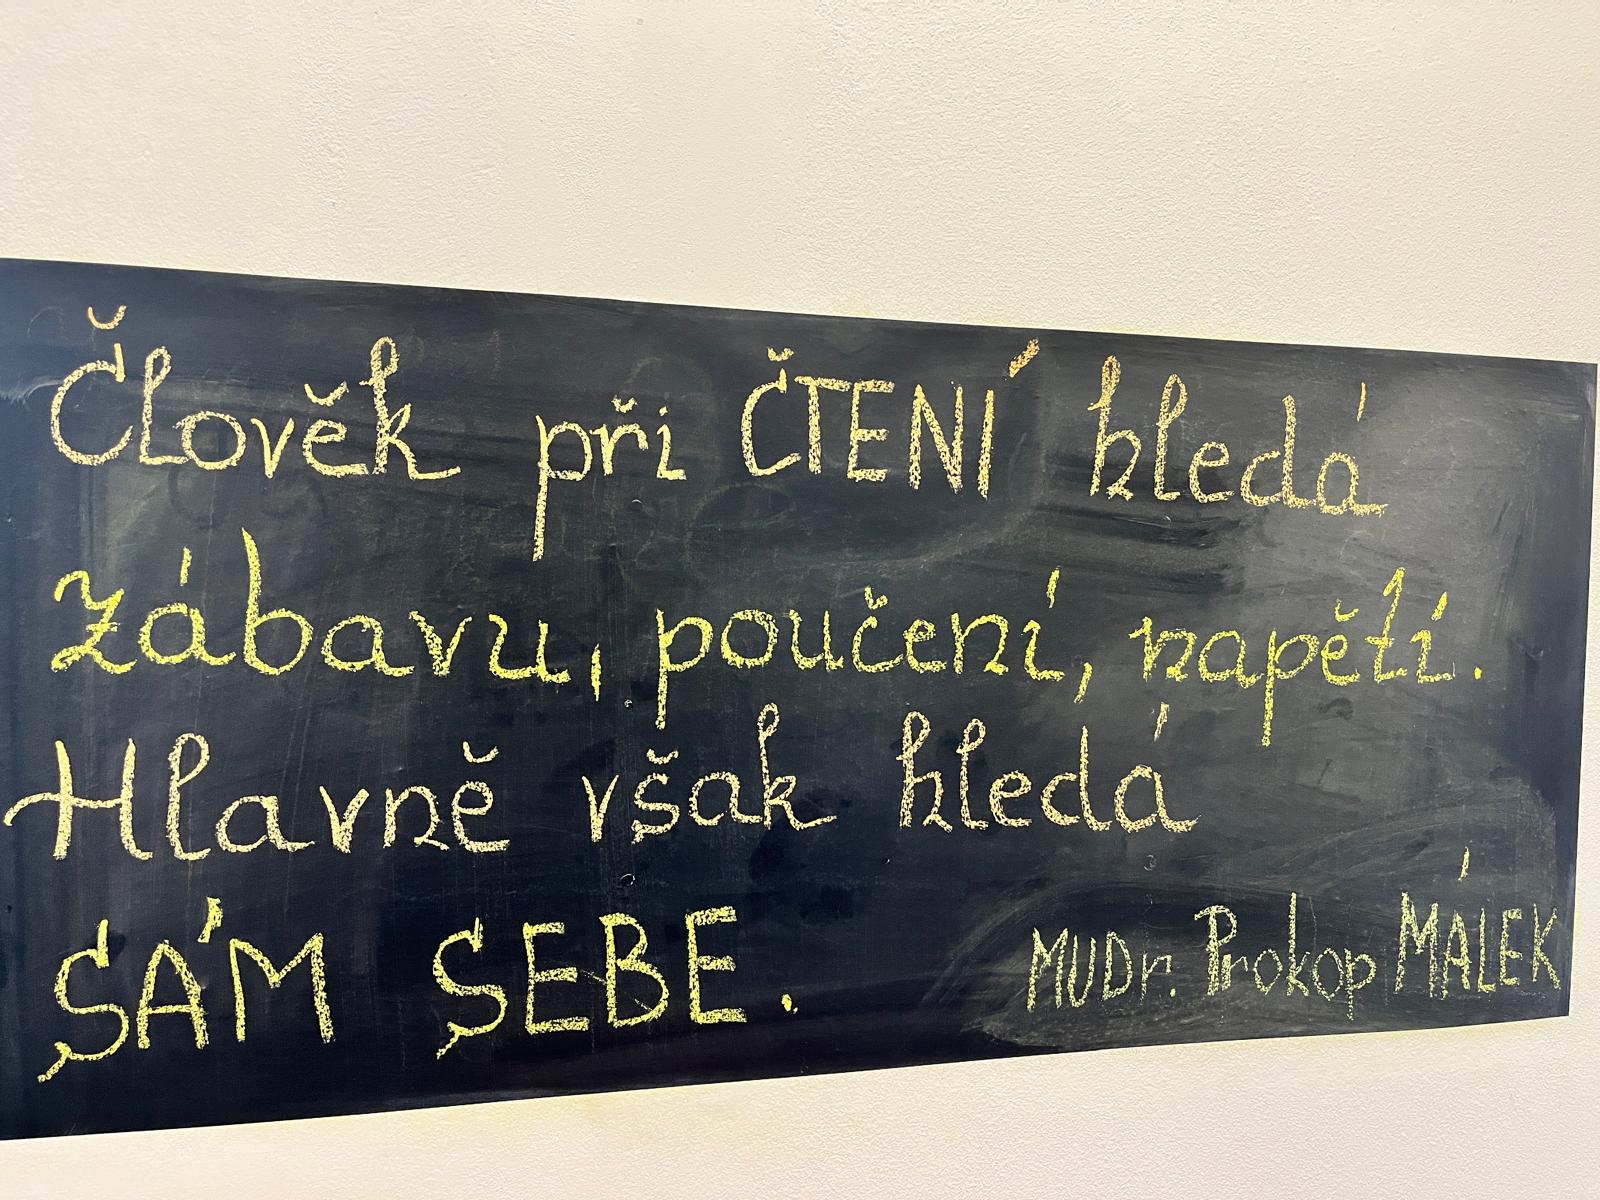 Člověk při ČTENÍ hledá
zábavu, poučení, napětí.
Hlavně však hledá
SÁM SEBE.
MUDr. Prokop MÁLEK